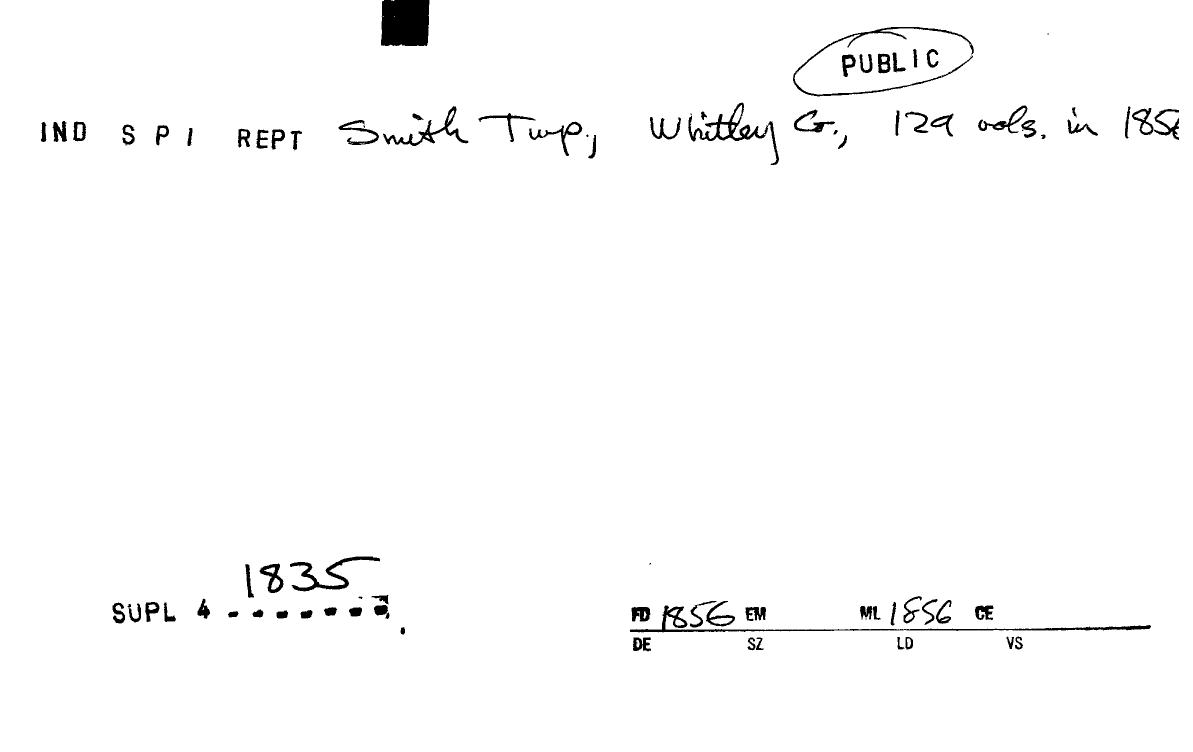 PUBLIC
IND S P I REPT Smith Twp., Whitley Co., 129 vols. in 1856
1835
SUPL 4 - - - - - - -
FD 1856 EM ML 1856 CE
DE SZ LD VS